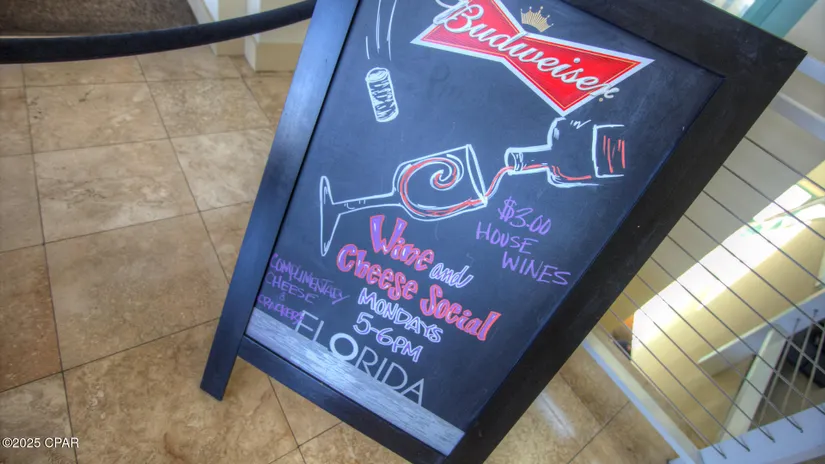 Budweiser
$3.00
HOUSE
WINES
Wine and
Cheese Social
MONDAYS
5-6PM
COMPLIMENTARY
CHEESE
&
CRACKERS
FLORIDA
©2025 CPAR